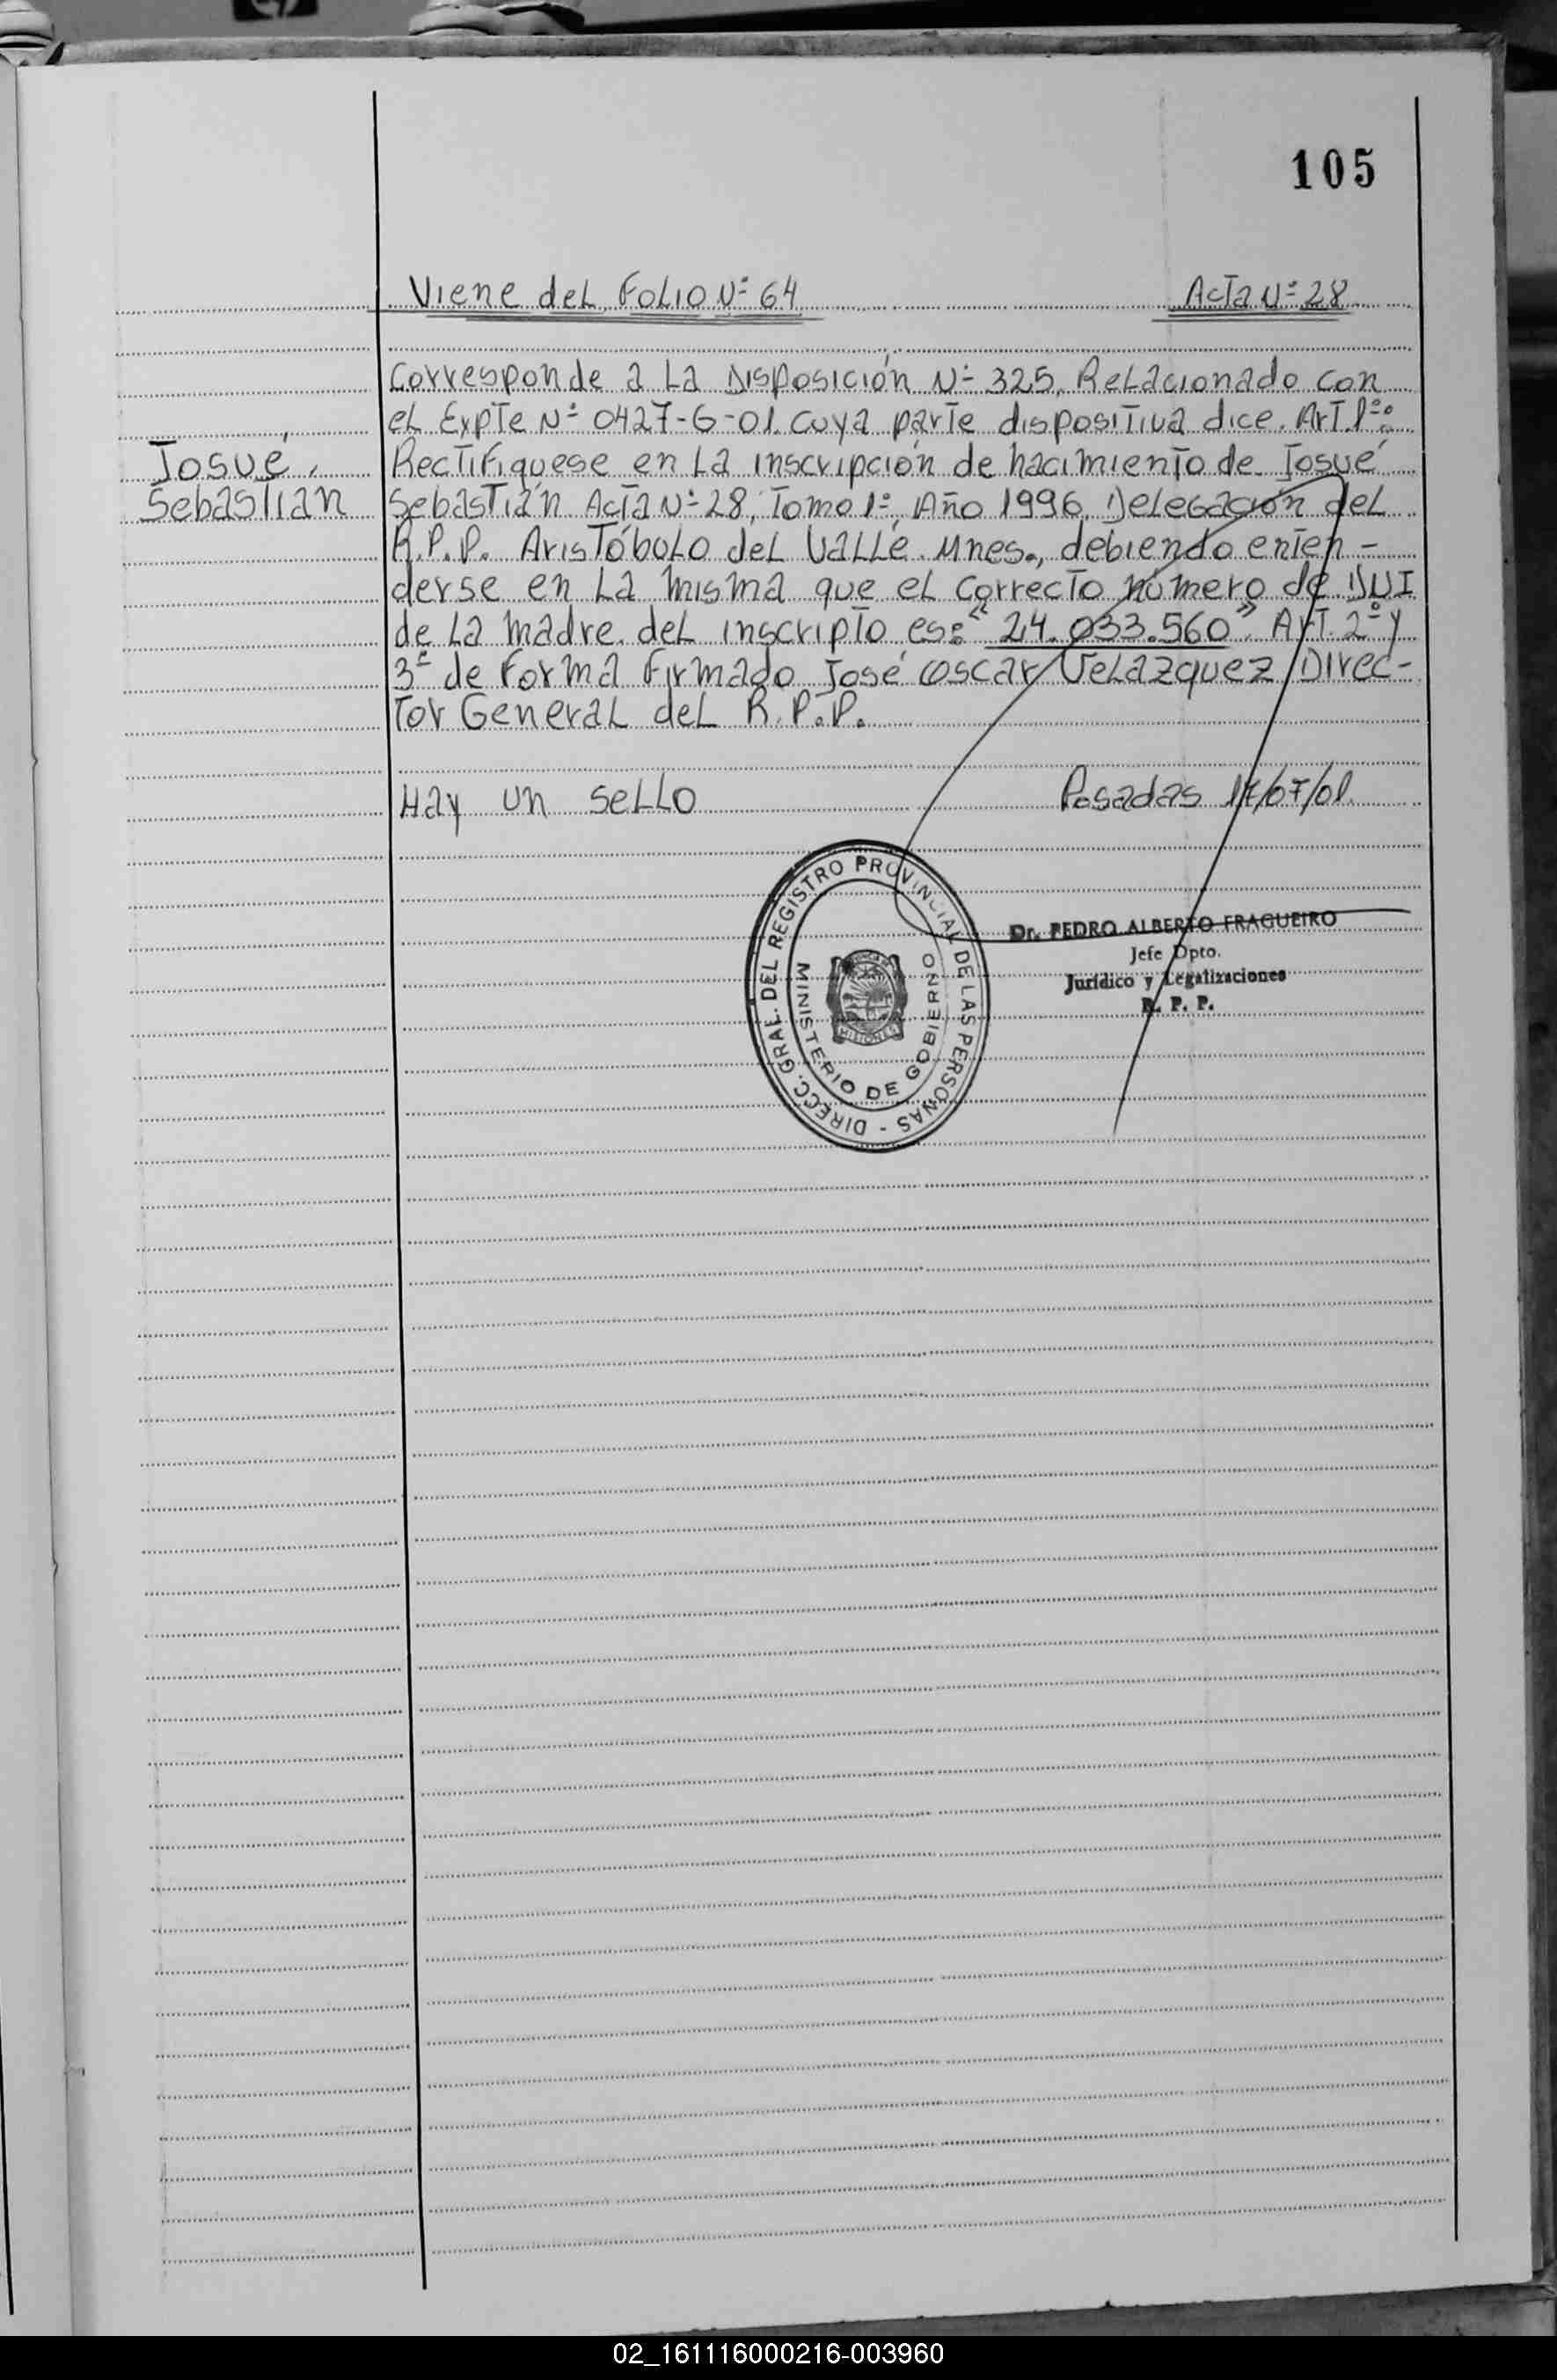 105
Viene del Folio Nº 64 Acta Nº 28
Corresponde a La Disposición Nº 325, Relacionado con
el Expte Nº 0427-G-01. Cuya parte dispositiva dice. Art. 1º:
Josué, Rectifiquese en La inscripción de nacimiento de Josué
Sebastian Sebastián Acta Nº 28, Tomo 1º, Año 1996, Delegación del
R.P.P. Aristóbulo del Valle. Mnes., debiendo enten-
derse en La misma que el correcto número de DNI
de La madre del inscripto es: "24.033.560". Art. 2º y
3º de Forma Firmado José Oscar Velazquez Direc-
tor General del R.P.P.
Hay un sello Posadas 17/07/01.
DIRECC. GRAL. DEL REGISTRO PROVINCIAL DE LAS PERSONAS -
MINISTERIO DE GOBIERNO
MISIONES
Dr. PEDRO ALBERTO FRAGUEIRO
Jefe Dpto.
Jurídico y Legalizaciones
R. P. P.
02_161116000216-003960